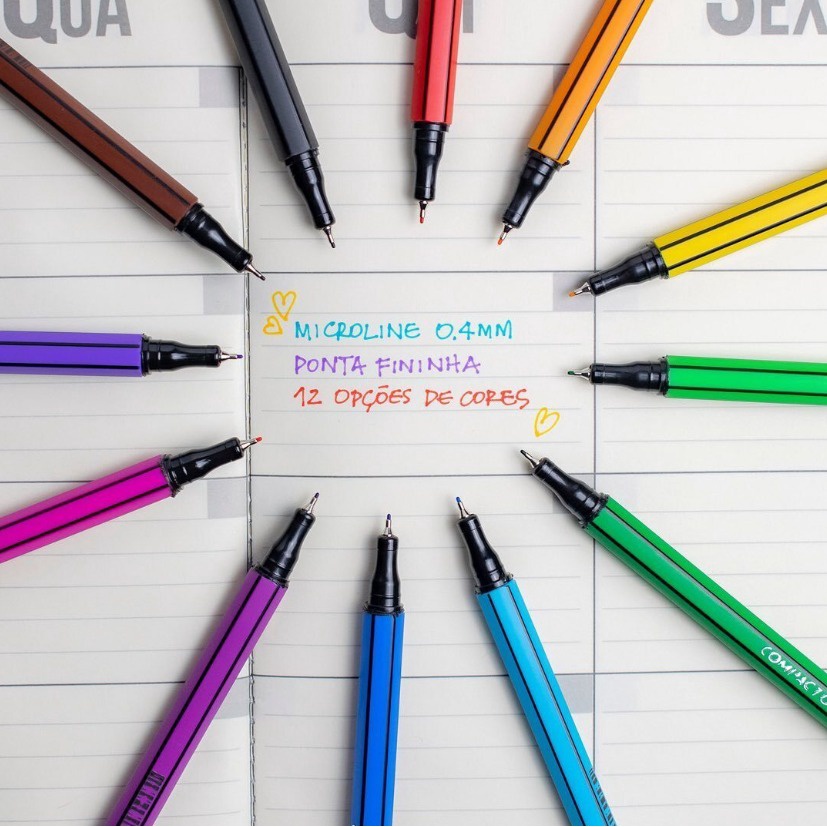 QUA
SEX
MICROLINE 0.4MM
PONTA FININHA
12 OPÇÕES DE CORES
COMPACTO